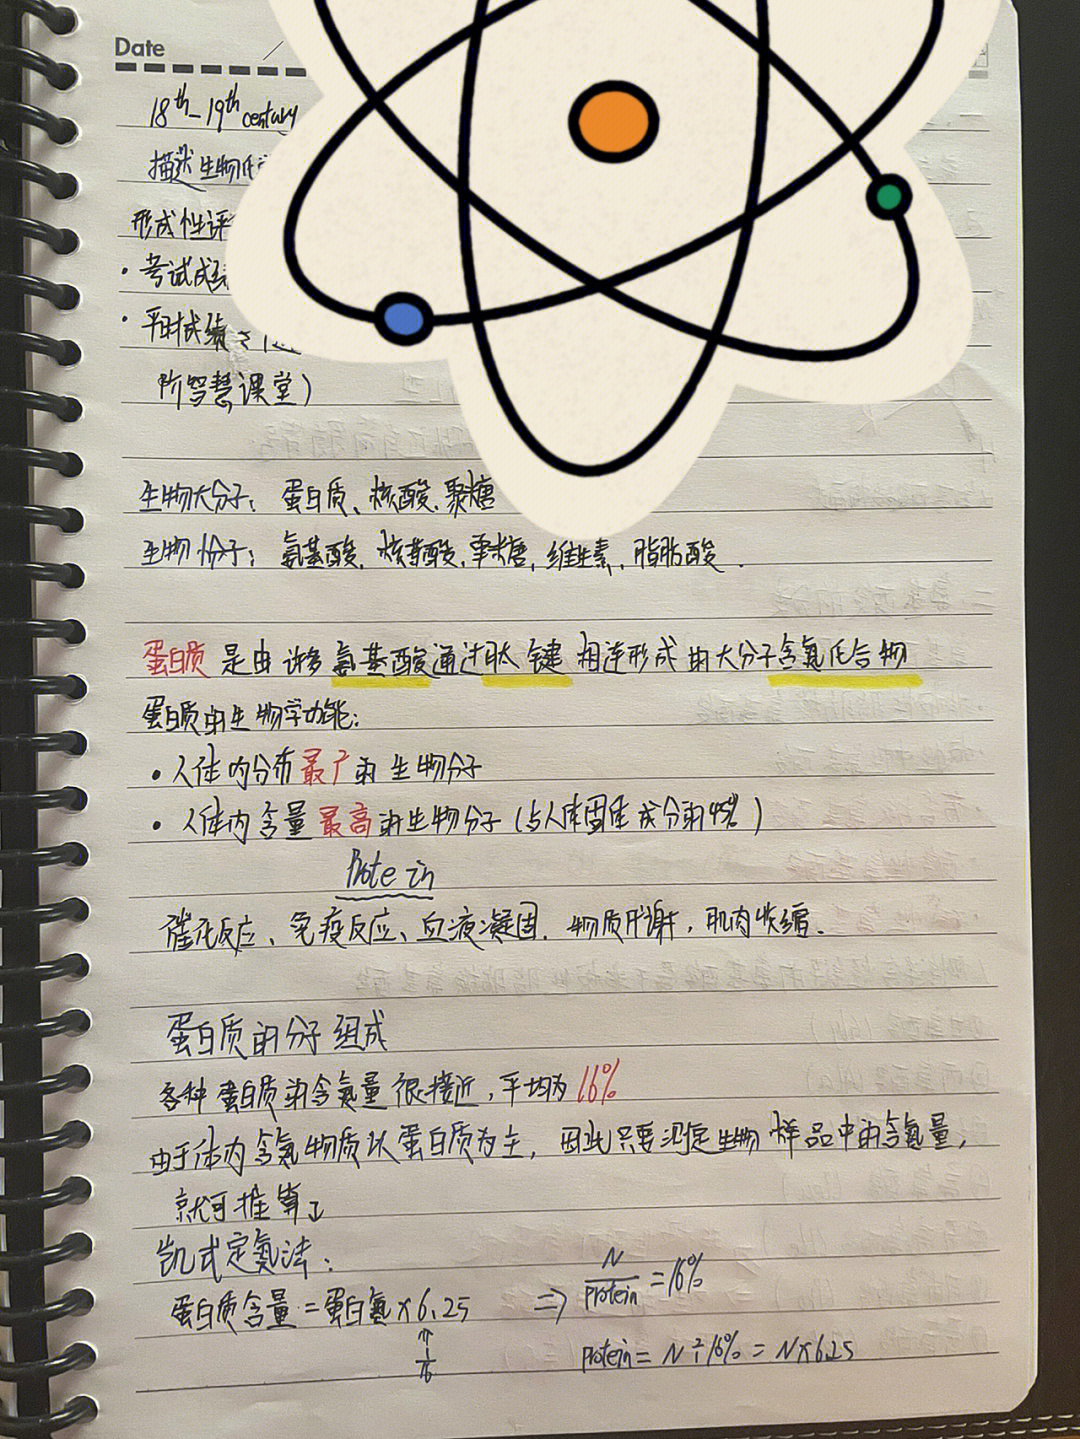 Date
18th-19th century
描述生物化
形成性评
· 考试成绩
· 平时成绩
阶智慧课堂)
生物大分子: 蛋白质、核酸、聚糖
生物小分子: 氨基酸、核苷酸、单糖、维生素、脂肪酸.
蛋白质是由许多氨基酸通过肽键相连形成的大分子含氮化合物
蛋白质的生物学功能:
· 人体内分布最广的生物分子
· 人体内含量最高的生物分子(占人体固体成分的45%)
Protein
催化反应、免疫反应、血液凝固. 物质代谢, 肌肉收缩.
蛋白质的分子组成
各种蛋白质的含氮量很接近,平均为16%
由于体内含氮物质以蛋白质为主, 因此只要测定生物样品中的含氮量,
就可推算了
凯式定氮法:
蛋白质含量=蛋白氮×6.25 ⇒ N/protein = 16%
protein = N÷16% = N×6.25